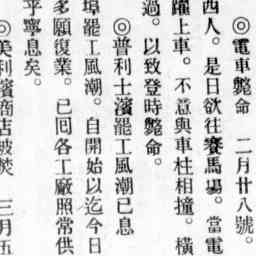 ◎電車斃命　二月廿八號。
西人。是日欲往賽馬塲。當電
躍上車。不意與車柱相撞。橫
過。以致登時斃命。
◎普利士濱罷工風潮已息
埠罷工風潮。自開始以迄今日
多願復業。已囘各工廠照常供
乎寧息矣。
◎美利濱商店被焚　三月五